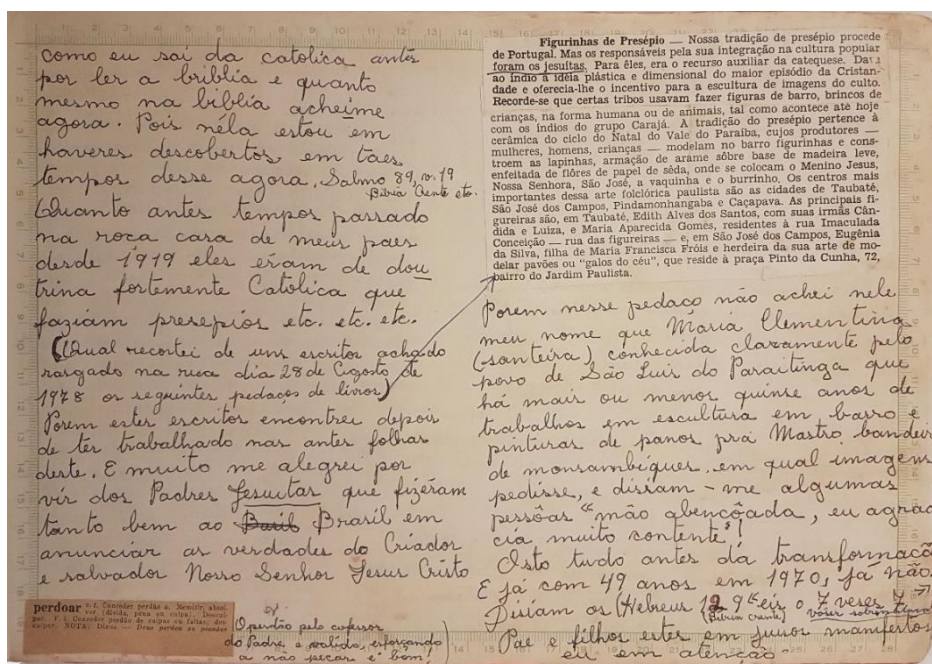 como eu saí da catolica antes
por ler a briblia e quanto
mesmo na biblia acheime
agora. Pois néla estou em
haveres descobertos em táes
tempos desse agora. Salmo 89, v. 19
Bibria Crente etc.
Quanto antes tempos passado
na roça casa de meus paes
desde 1919 eles eram de dou
trina fortemente Catolica que
faziam presepios etc. etc. etc.
(Qual recortei de uns escritos achado
rasgado na rua dia 28 de Agosto de
1978 os seguintes pedaços de livros)
Porem estes escritos encontrei depois
de ter trabalhado nas antes folhas
deste. E muito me alegrei por
vir dos Padres Jesuitas que fizéram
tanto bem ao Brasil em
anunciar as verdades do Criador
e salvador Nosso Senhor Jesus Cristo
perdoar v. t. Conceder perdão a. Remitir, absol-
ver (dívida, pena ou culpa). Descul-
par. V. i. Conceder perdão de culpas ou faltas; des-
culpar. NOTA: Dizes — Deus perdoa ao pecador
(O perdão pelo cofessor
do Padre, é válido, esforçando
a não pecar é bom!)
Figurinhas de Presépio — Nossa tradição de presépio procede
de Portugal. Mas os responsáveis pela sua integração na cultura popular
foram os jesuítas. Para êles, era o recurso auxiliar da catequese. Dava
ao índio a idéia plástica e dimensional do maior episódio da Cristan-
dade e oferecia-lhe o incentivo para a escultura de imagens do culto.
Recorde-se que certas tribos usavam fazer figuras de barro, brincos de
crianças, na forma humana ou de animais, tal como acontece até hoje
com os índios do grupo Carajá. A tradição do presépio pertence à
cerâmica do ciclo do Natal do Vale do Paraíba, cujos produtores —
mulheres, homens, crianças — modelam no barro figurinhas e cons-
troem as lapinhas, armação de arame sôbre base de madeira leve,
enfeitada de flôres de papel de sêda, onde se colocam o Menino Jesus,
Nossa Senhora, São José, a vaquinha e o burrinho. Os centros mais
importantes dessa arte folclórica paulista são as cidades de Taubaté,
São José dos Campos, Pindamonhangaba e Caçapava. As principais fi-
gureiras são, em Taubaté, Edith Alves dos Santos, com suas irmãs Cân-
dida e Luiza, e Maria Aparecida Gomes, residentes à rua Imaculada
Conceição — rua das figureiras — e, em São José dos Campos, Eugênia
da Silva, filha de Maria Francisca Fróis e herdeira da sua arte de mo-
delar pavões ou "galos do céu", que reside à praça Pinto da Cunha, 72,
bairro do Jardim Paulista.
Porem nesse pedaço não achei nele
meu nome que Maria Clementina
(santeira) conhecida claramente pelo
povo de São Luis do Paraitinga que
há mais ou menos quinse anos de
trabalhos em escultura em barro e
pinturas de panos pra Mastro bandeir
de monsambiques, em qual imagens
pedisse, e dissam-me algumas
pessôas "mão abençôada, eu agrade
cia muito contente"!
Isto tudo antes da transformacã
E já com 49 anos em 1970, já não
Disiam os (Hebreus 12 9 eis o 7 veses 7
Bibria crente)
Pae e filhos estes em juisos manifestos
eu em atenção